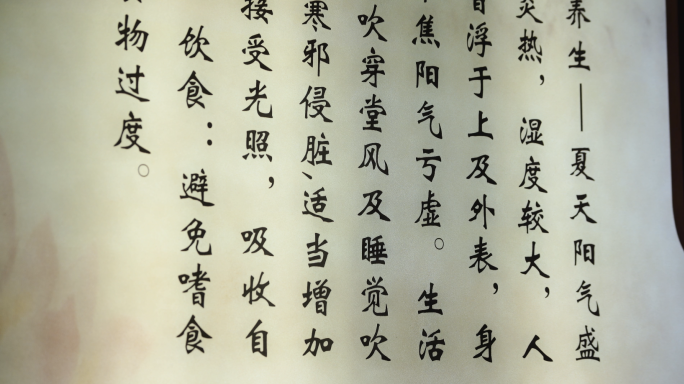 养生——夏天阳气盛
炎热，湿度较大，人
浮于上及外表，身
焦阳气亏虚。生活
吹穿堂风及睡觉吹
寒邪侵脏、适当增加
接受光照，吸收自
饮食：避免嗜食
物过度。